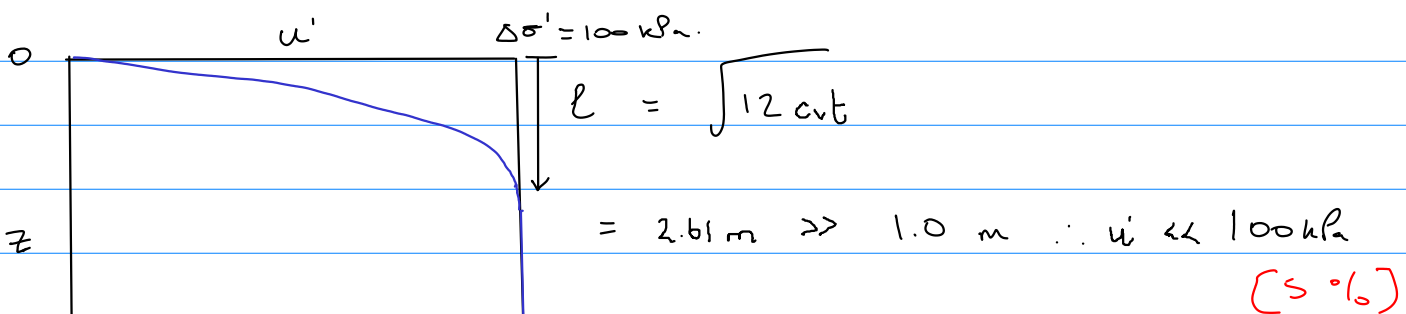 u' Δσ' = 100 kPa.
0
ℓ = √12 cvt
z = 2.61 m >> 1.0 m ∴ u' << 100 kPa
[5 %]